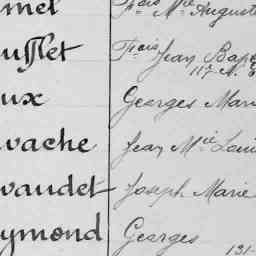 mel Fçois Mie Auguste
ufflet Fçois Jean Bap
117 A.
ux Georges Mari
vache Jean Mie Loui
vaudet Joseph Marie
ymond Georges
131-